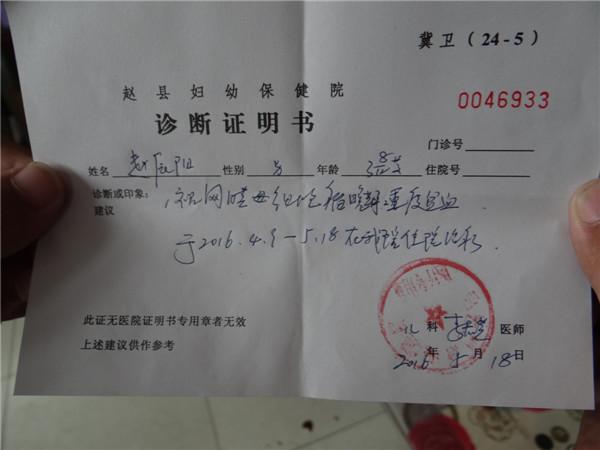 冀卫(24-5)
赵县妇幼保健院
0046933
诊断证明书
门诊号
姓名 性别 男 年龄 住院号
诊断或印象:
视网膜母细胞瘤 重度贫血
建议
于2016.4.9-5.18在我院住院治疗
此证无医院证明书专用章者无效
儿科 医师
上述建议供作参考
2016年5月18日